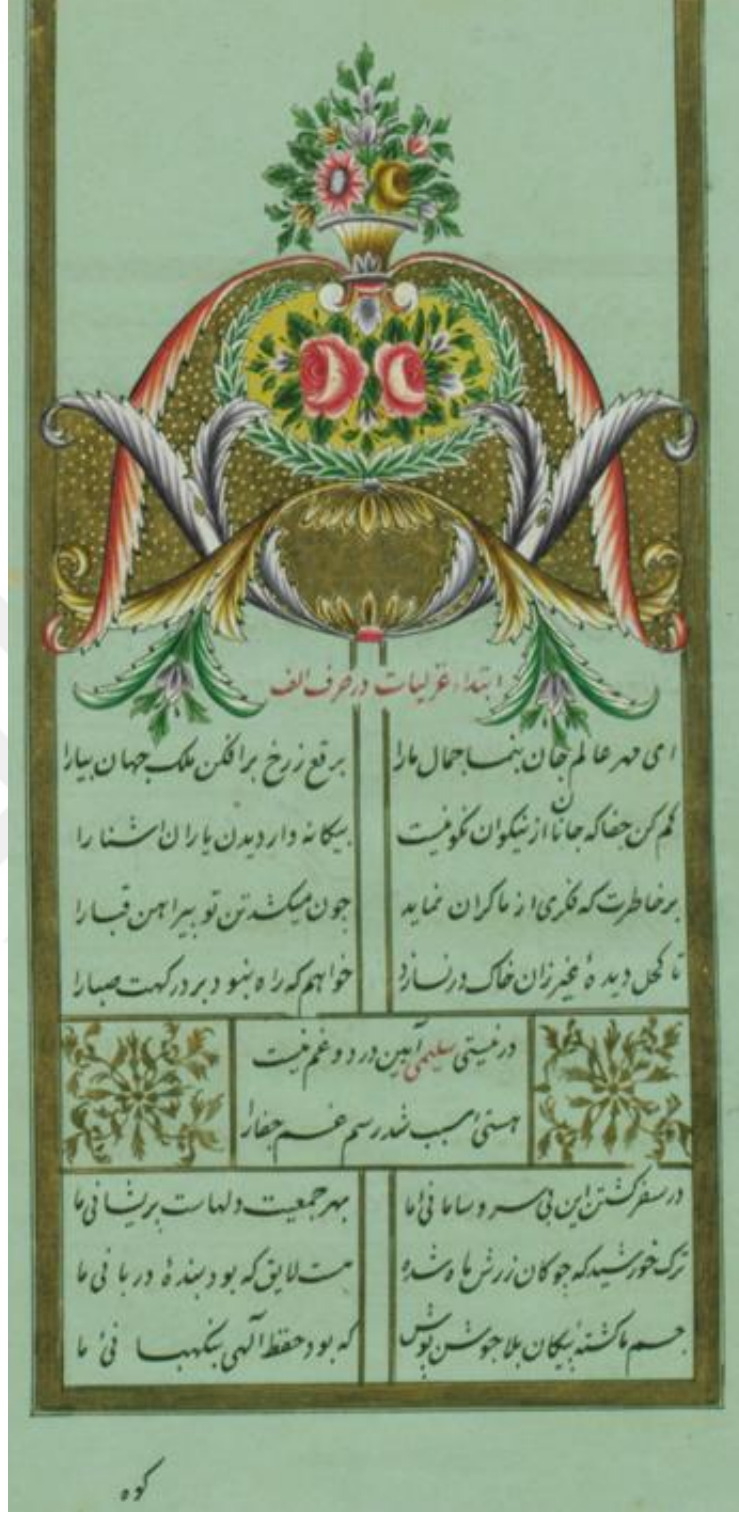 ابتداء غزلیات در حرف الف
ای مهر عالم جان بنما جمال مارا برقع ز رخ برافکن ملک جهان بیارا
کم کن جفا که جانان از نیکوان نکو نیست بیکانه وار دیدن یاران اشنا را
بر خاطرت که فکری از ما کران نماید جون میکشد تن تو بیراهن قبارا
تا کحل دیده غیر زان خاک در نسازد خواهم که راه نبود بر درکهت صبارا
در نیستی سلیمی آیین درد و غم نیست
هستی سبب شد رسم غم جفارا
در سفر کشتن این بی سر و سامانی ما بهر جمعیت دلهاست بریشانی ما
ترک خورشید که جوکان زرش ماه شده هست لایق که بود بنده دربانی ما
جسم ما کشته بیکان بلا جوشن بوش که بود حفظ آلهی بنکهبانئ ما
کوه